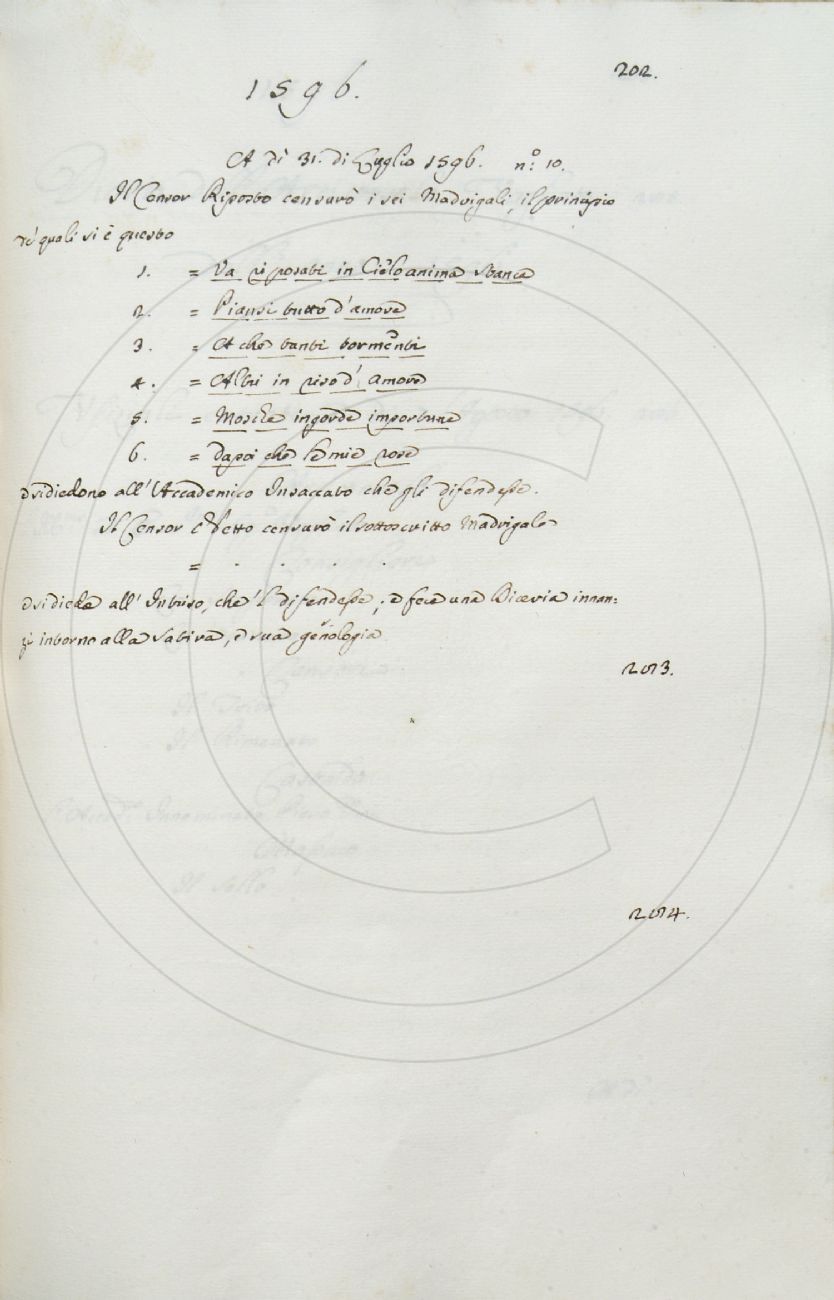 202.
1596.
A dì 31. di Luglio 1596. n.° 10.
Il Censor Riposto censurò i sei Madrigali, il principio
de' quali si è questo
1. = Va riposati in Cielo anima stanca
2. = Piansi tutto d'amore
3. = A che tanti tormenti
4. = Altri in riso d'amore
5. = Mosche ingorde importune
6. = Dapoi che le mie rose
e si diedono all'Accademico Insaccato che gli difendesse.
Il Censor detto censurò il sottoscritto Madrigale
= . . . .
e si diede all'Intriso, che l' difendesse; e fece una Diceria innan=
zi intorno alla Satira, e sua genologia
203.
204.